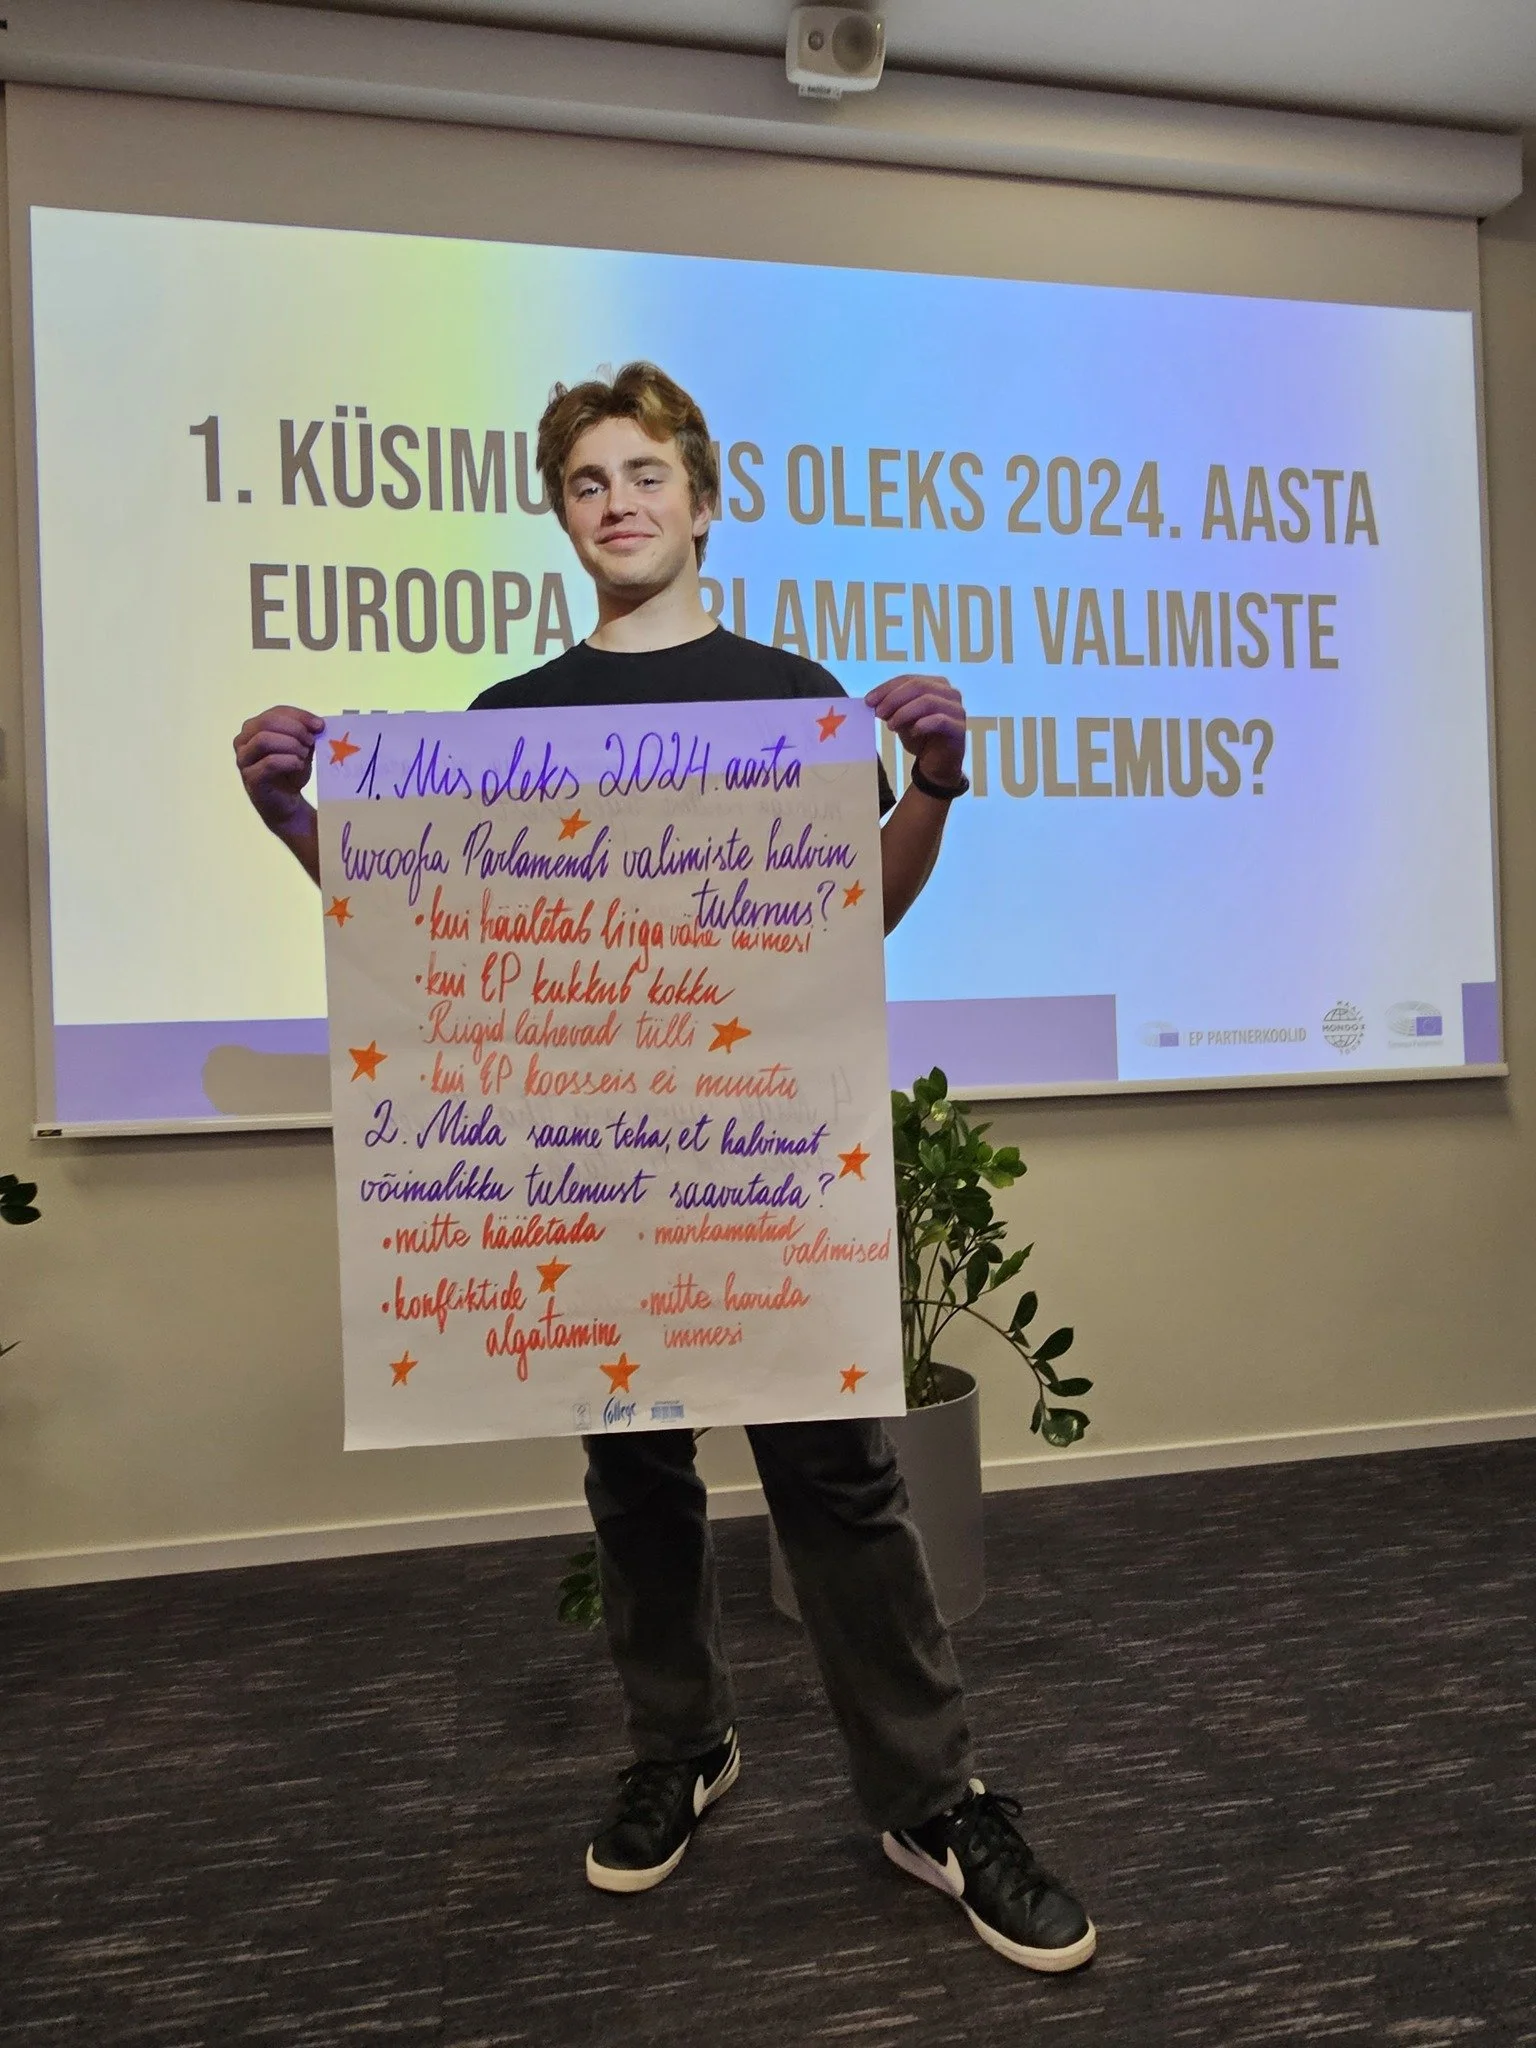 1. KÜSIMU IS OLEKS 2024. AASTA
EUROOPA PARLAMENDI VALIMISTE
TULEMUS?
EP PARTNERKOOLID
MONDO
1. Mis oleks 2024. aasta
Euroopa Parlamendi valimiste halvim
tulemus?
• kui hääletab liiga vähe inimesi
• kui EP kukkub kokku
• Riigid lähevad tülli
• kui EP koosseis ei muutu
2. Mida saame teha, et halvimat
võimalikku tulemust saavutada?
• mitte hääletada
• konfliktide
algatamine
• märkamatud
valimised
• mitte harida
inimesi
College